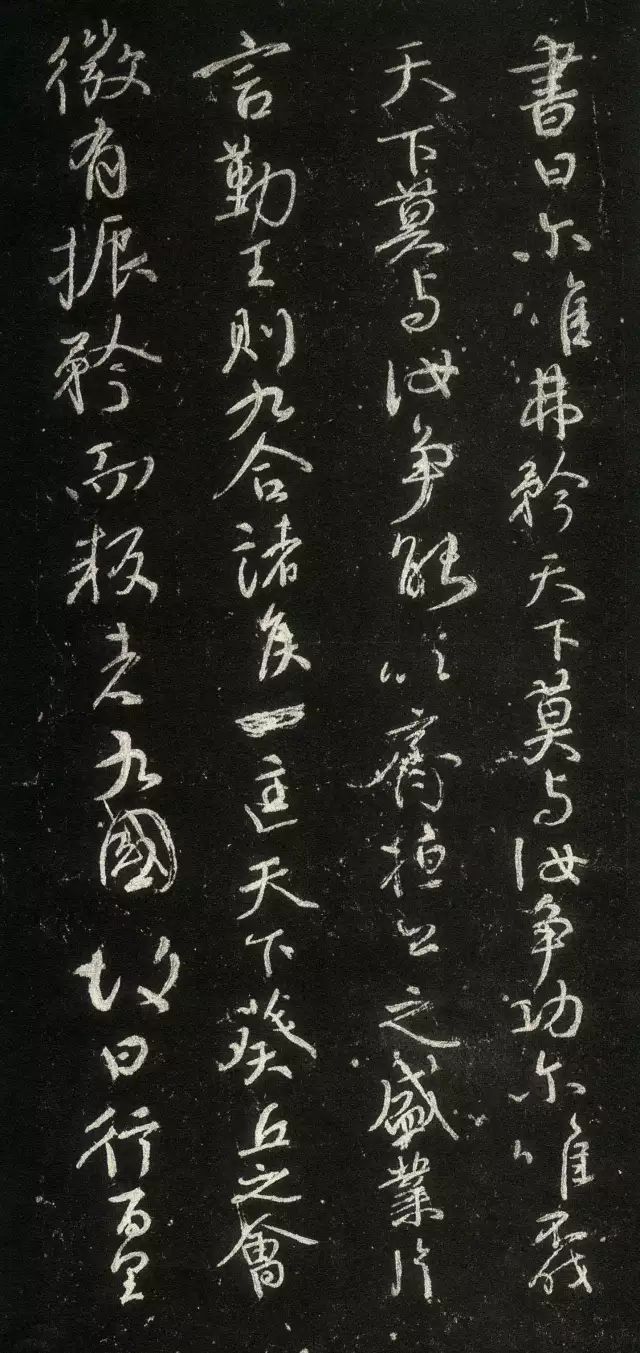 書曰尔唯弗矜天下莫与汝争功尔唯不伐
天下莫与汝争能以齊桓公之盛業片
言勤王則九合諸侯一匡天下葵丘之會
微有振矜而叛者九國故曰行百里